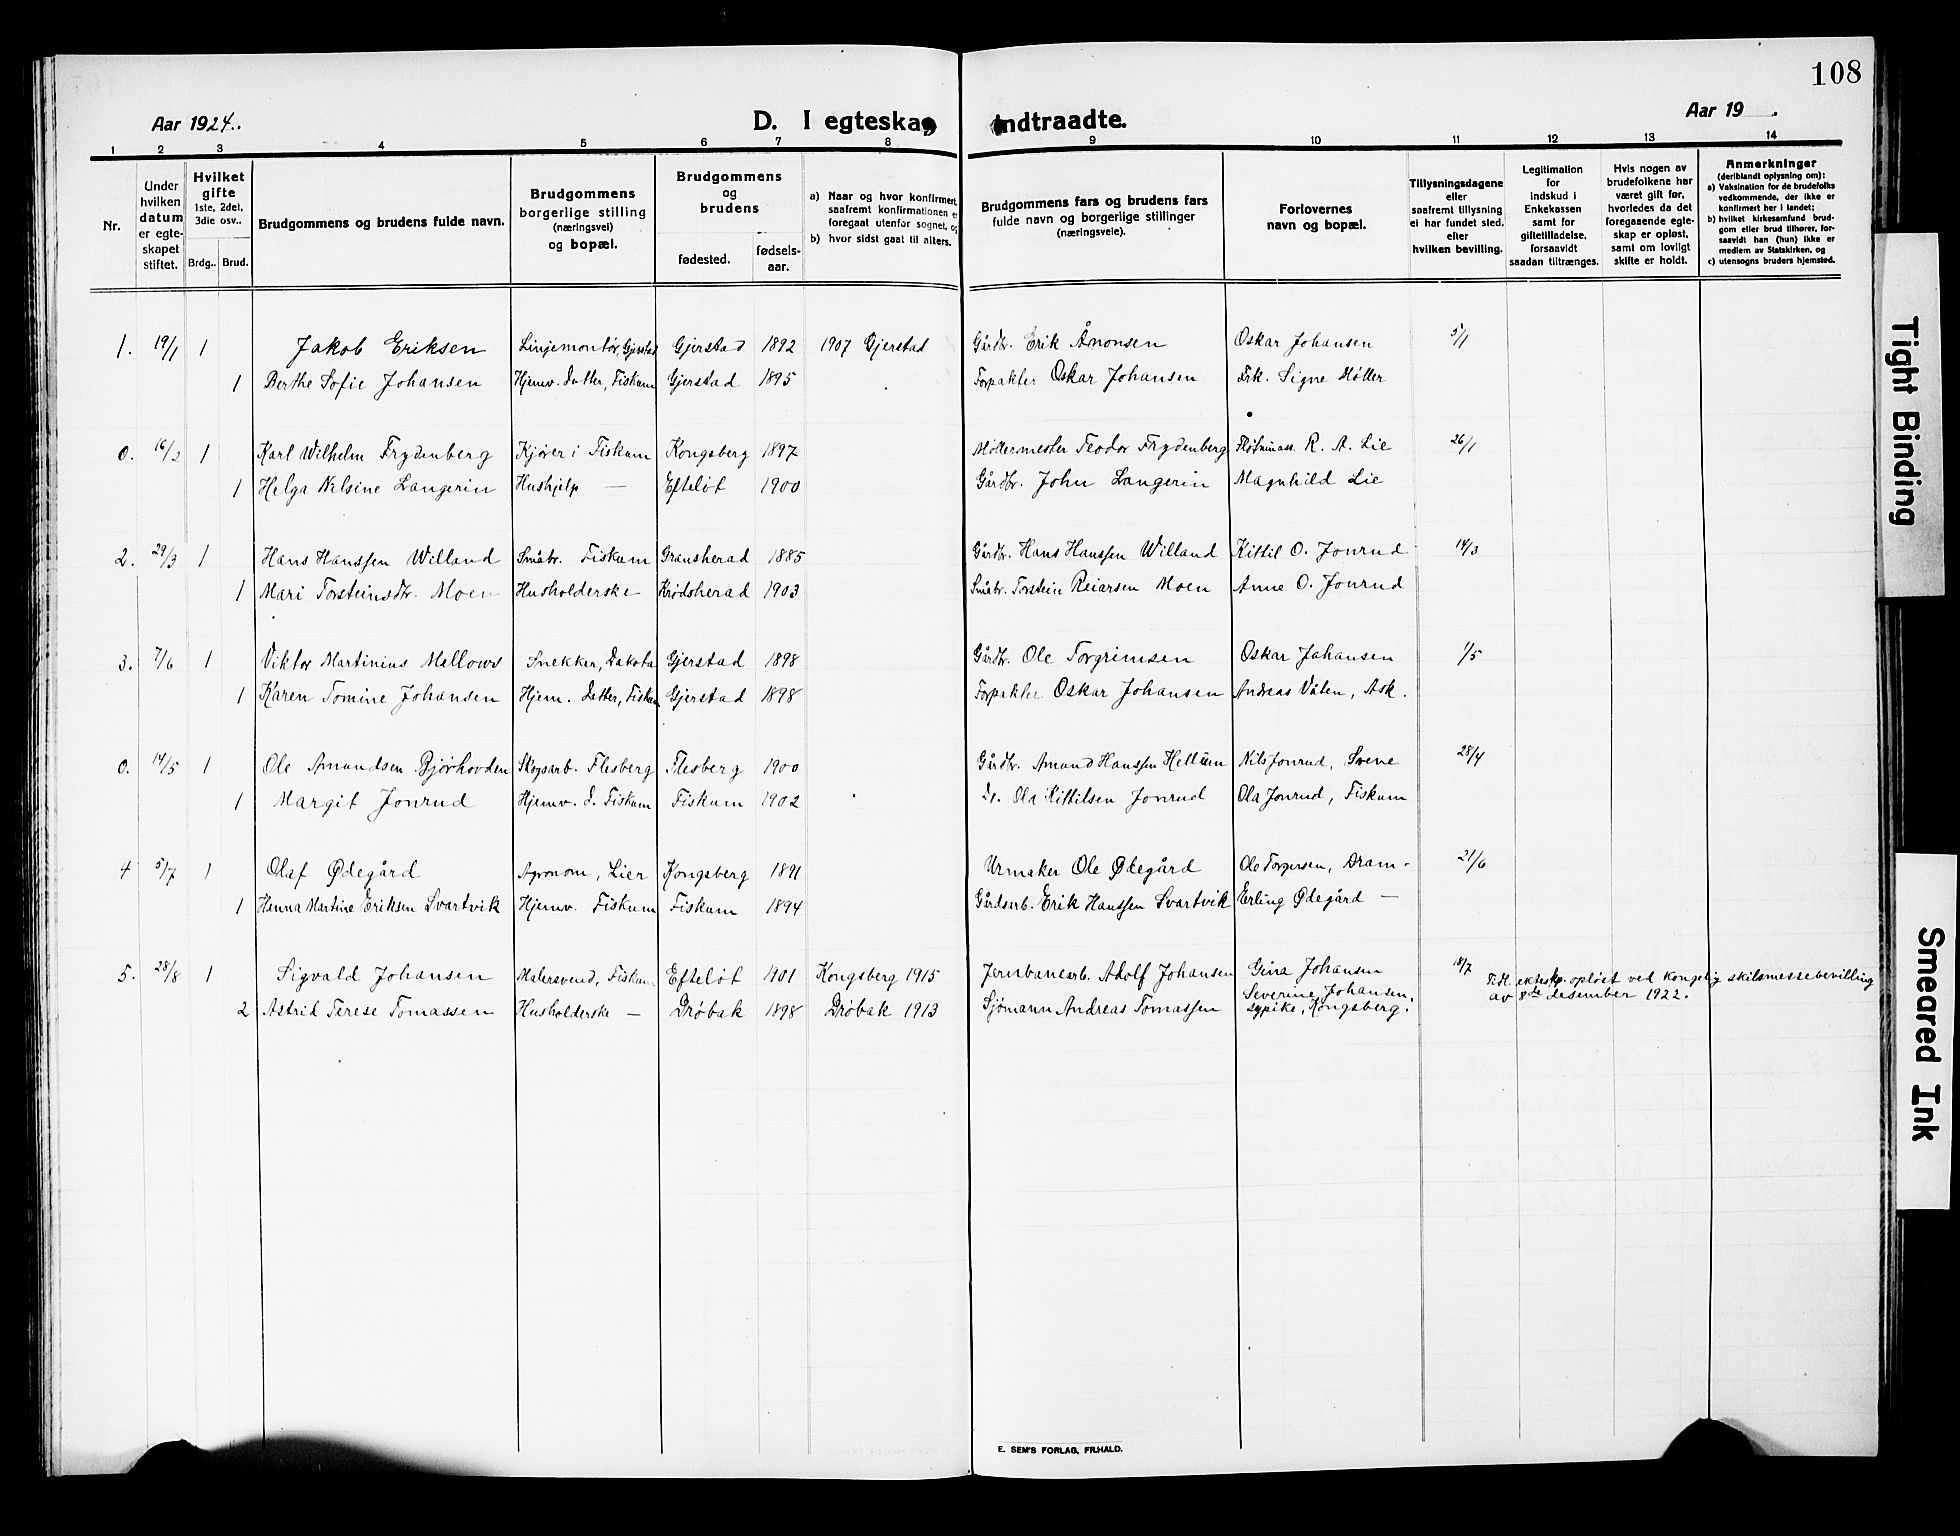 108
Aar 1924.
D. I egteskap indtraadte.
Aar 19 .
1 2 3 4 5 6 7 8 9 10 11 12 13 14
Nr.
Under hvilken datum er egte-skapet stiftet.
Hvilket gifte 1ste, 2det, 3die osv..
Brdg.. Brud.
Brudgommens og brudens fulde navn.
Brudgommens borgerlige stilling (næringsvei) og bopæl.
Brudgommens og brudens
fødested. fødsels-aar.
a) Naar og hvor konfirmert, saafremt konfirmationen er foregaat utenfor sognet, og
b) hvor sidst gaat til alters.
Brudgommens fars og brudens fars fulde navn og borgerlige stillinger (næringsveie).
Forlovernes navn og bopæl.
Tillysningsdagene eller saafremt tillysning ei har fundet sted. efter hvilken bevilling.
Legitimation for indskud i Enkekassen samt for giftetilladelse, forsaavidt saadan tiltrænges.
Hvis nogen av brudefolkene har været gift før, hvorledes da det foregaaende egte-skap er opløst, samt om lovligt skifte er holdt.
Anmerkninger (deriblandt oplysning om):
a) Vaksination for de brudefolks vedkommende, der ikke er konfirmert her i landet;
b) hvilket kirkesamfund brud-gom eller brud tilhører, for-saavidt han (hun) ikke er medlem av Statskirken, og
c) utensogns bruders hjemsted.
1. 19/1 1 Jakob Eriksen Linjemontør, Gjerstad Gjerstad 1892 1907 Gjerstad Gårdbr. Erik Ånonsen Oskar Johansen 5/1
1 Berthe Sofie Johansen Hjemv. datter, Fiskum Gjerstad 1895 Forpakter Oskar Johansen Frk. Signe Møller
0. 16/2 1 Karl Wilhelm Frydenberg Kjører i Fiskum Kongsberg 1897 Møllermester Teodor Frydenberg R. A. Lie 26/1
1 Helga Nilsine Langerin Hushjelp — Efteløt 1900 Gårdbr. John Langerin Magnhild Lie
2. 29/3 1 Hans Hanssen Willand Småbr. Fiskum Gransherad 1885 Gårdbr. Hans Hanssen Willand Kittil O. Jonrud 14/3
1 Mari Torsteinsdtr. Moen Husholderske Krødsherad 1903 Småbr. Torstein Reiarsen Moen Anne O. Jonrud
3. 7/6 1 Viktor Martinius Mallows Snekker, Dakota Gjerstad 1898 Gårdbr. Ole Torgrimsen Oskar Johansen 1/5
1 Karen Tomine Johansen Hjem. datter, Fiskum Gjerstad 1898 Forpakter Oskar Johansen Andreas Våten, Ask.
0. 14/5 1 Ole Amundsen Bjørhovden Skogsarb. Flesberg Flesberg 1900 Gårdbr. Amund Hanssen Hellum Nils Jonrud, Svene 28/4
1 Margit Jonrud Hjemv. d. Fiskum Fiskum 1902 Do. Ola Kittilsen Jonrud Ola Jonrud, Fiskum
4 5/7 1 Olaf Ødegård Agronom, Lier Kongsberg 1891 Urmaker Ole Ødegård Ole Torgersen, Dram- 21/6
1 Hanna Martine Eriksen Svartvik Hjemv. Fiskum Fiskum 1894 Gårdsarb. Erik Hanssen Svartvik Erling Ødegård —
5. 28/8 1 Sigvald Johansen Malersvend, Fiskum Efteløt 1901 Kongsberg 1915 Jernbanearb. Adolf Johansen Gina Johansen 18/7 Tidl. ektesk. opløst ved kongelig skilsmessebevilling
av 8de desember 1922.
2 Astrid Terese Tomassen Husholderske — Drøbak 1898 Drøbak 1913 Sjømann Andreas Tomassen Severine Johansen,
sypike, Kongsberg.
E. SEM'S FORLAG, FR.HALD.
Tight Binding
Smeared Ink